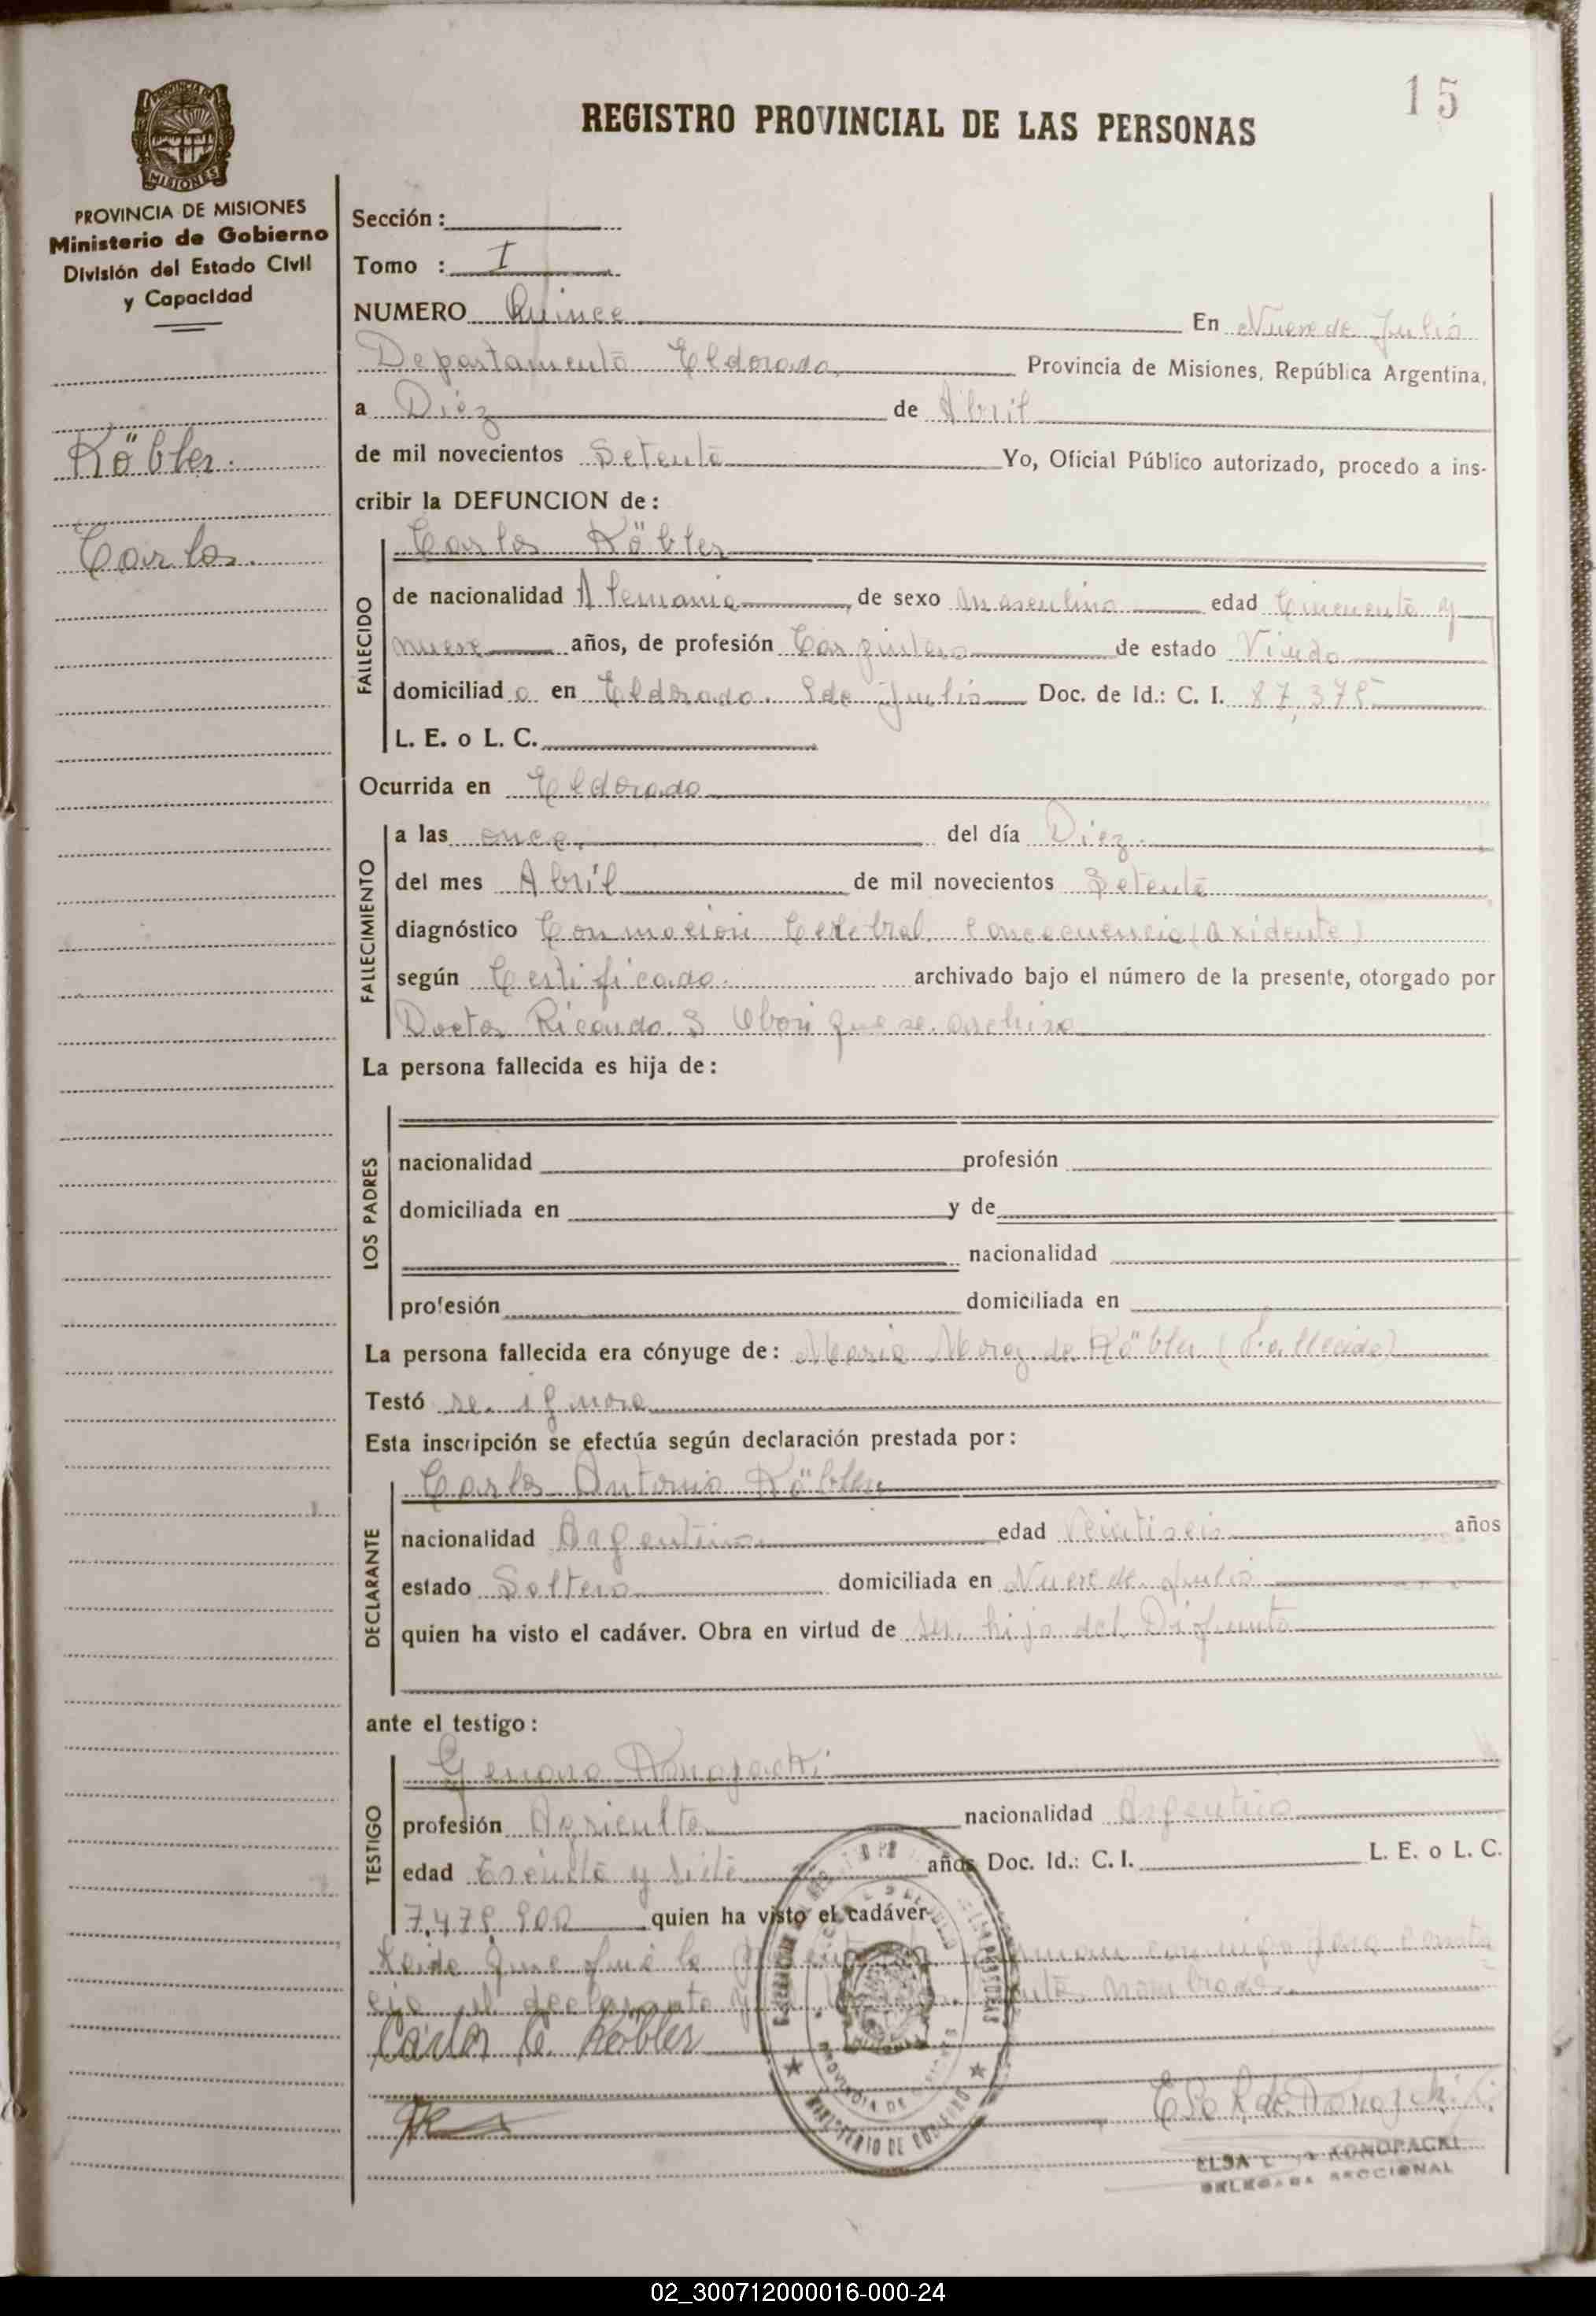 15
REGISTRO PROVINCIAL DE LAS PERSONAS
PROVINCIA DE MISIONES
Ministerio de Gobierno
División del Estado Civil
y Capacidad
Köbler.
Carlos.
Sección :
Tomo : I
NUMERO Quince En Nueve de Julio
Departamento Eldorado, Provincia de Misiones, República Argentina,
a Diez de Abril
de mil novecientos Setenta Yo, Oficial Público autorizado, procedo a ins-
cribir la DEFUNCION de :
Carlos Köbler
FALLECIDO
de nacionalidad Alemania, de sexo Masculino edad Cincuenta y
nueve años, de profesión Carpintero de estado Viudo
domiciliado en Eldorado. 9 de Julio Doc. de Id.: C. I. 87,375
L. E. o L. C.
Ocurrida en Eldorado
FALLECIMIENTO
a las once, del día Diez.
del mes Abril de mil novecientos Setenta
diagnóstico Conmocion Cerebral, Concecuencia (axidente)
según Certificado. archivado bajo el número de la presente, otorgado por
Doctor Ricardo. S que se archiva
La persona fallecida es hija de :
LOS PADRES
nacionalidad profesión
domiciliada en y de
nacionalidad
profesión domiciliada en
La persona fallecida era cónyuge de : Maria de Köbler (Fallecida)
Testó se ignora
Esta inscripción se efectúa según declaración prestada por :
Carlos Antonio Köbler
DECLARANTE
nacionalidad Argentino edad Veintiseis años
estado Soltero domiciliada en Nueve de Julio
quien ha visto el cadáver. Obra en virtud de ser hijo del Difunto
ante el testigo :
Genaro Konopacki
TESTIGO
profesión Agriculto nacionalidad Argentino
edad Treinta y siete años Doc. Id.: C. I. L. E. o L. C.
7,479.900 quien ha visto el cadáver
Leida que fué la conmigo para consta
cia el declarante y nombrado.
Carlos A. Köbler
MINISTERIO DE GOBIERNO
ELSA KONOPACKI
DELEGADA SECCIONAL
02_300712000016-000-24